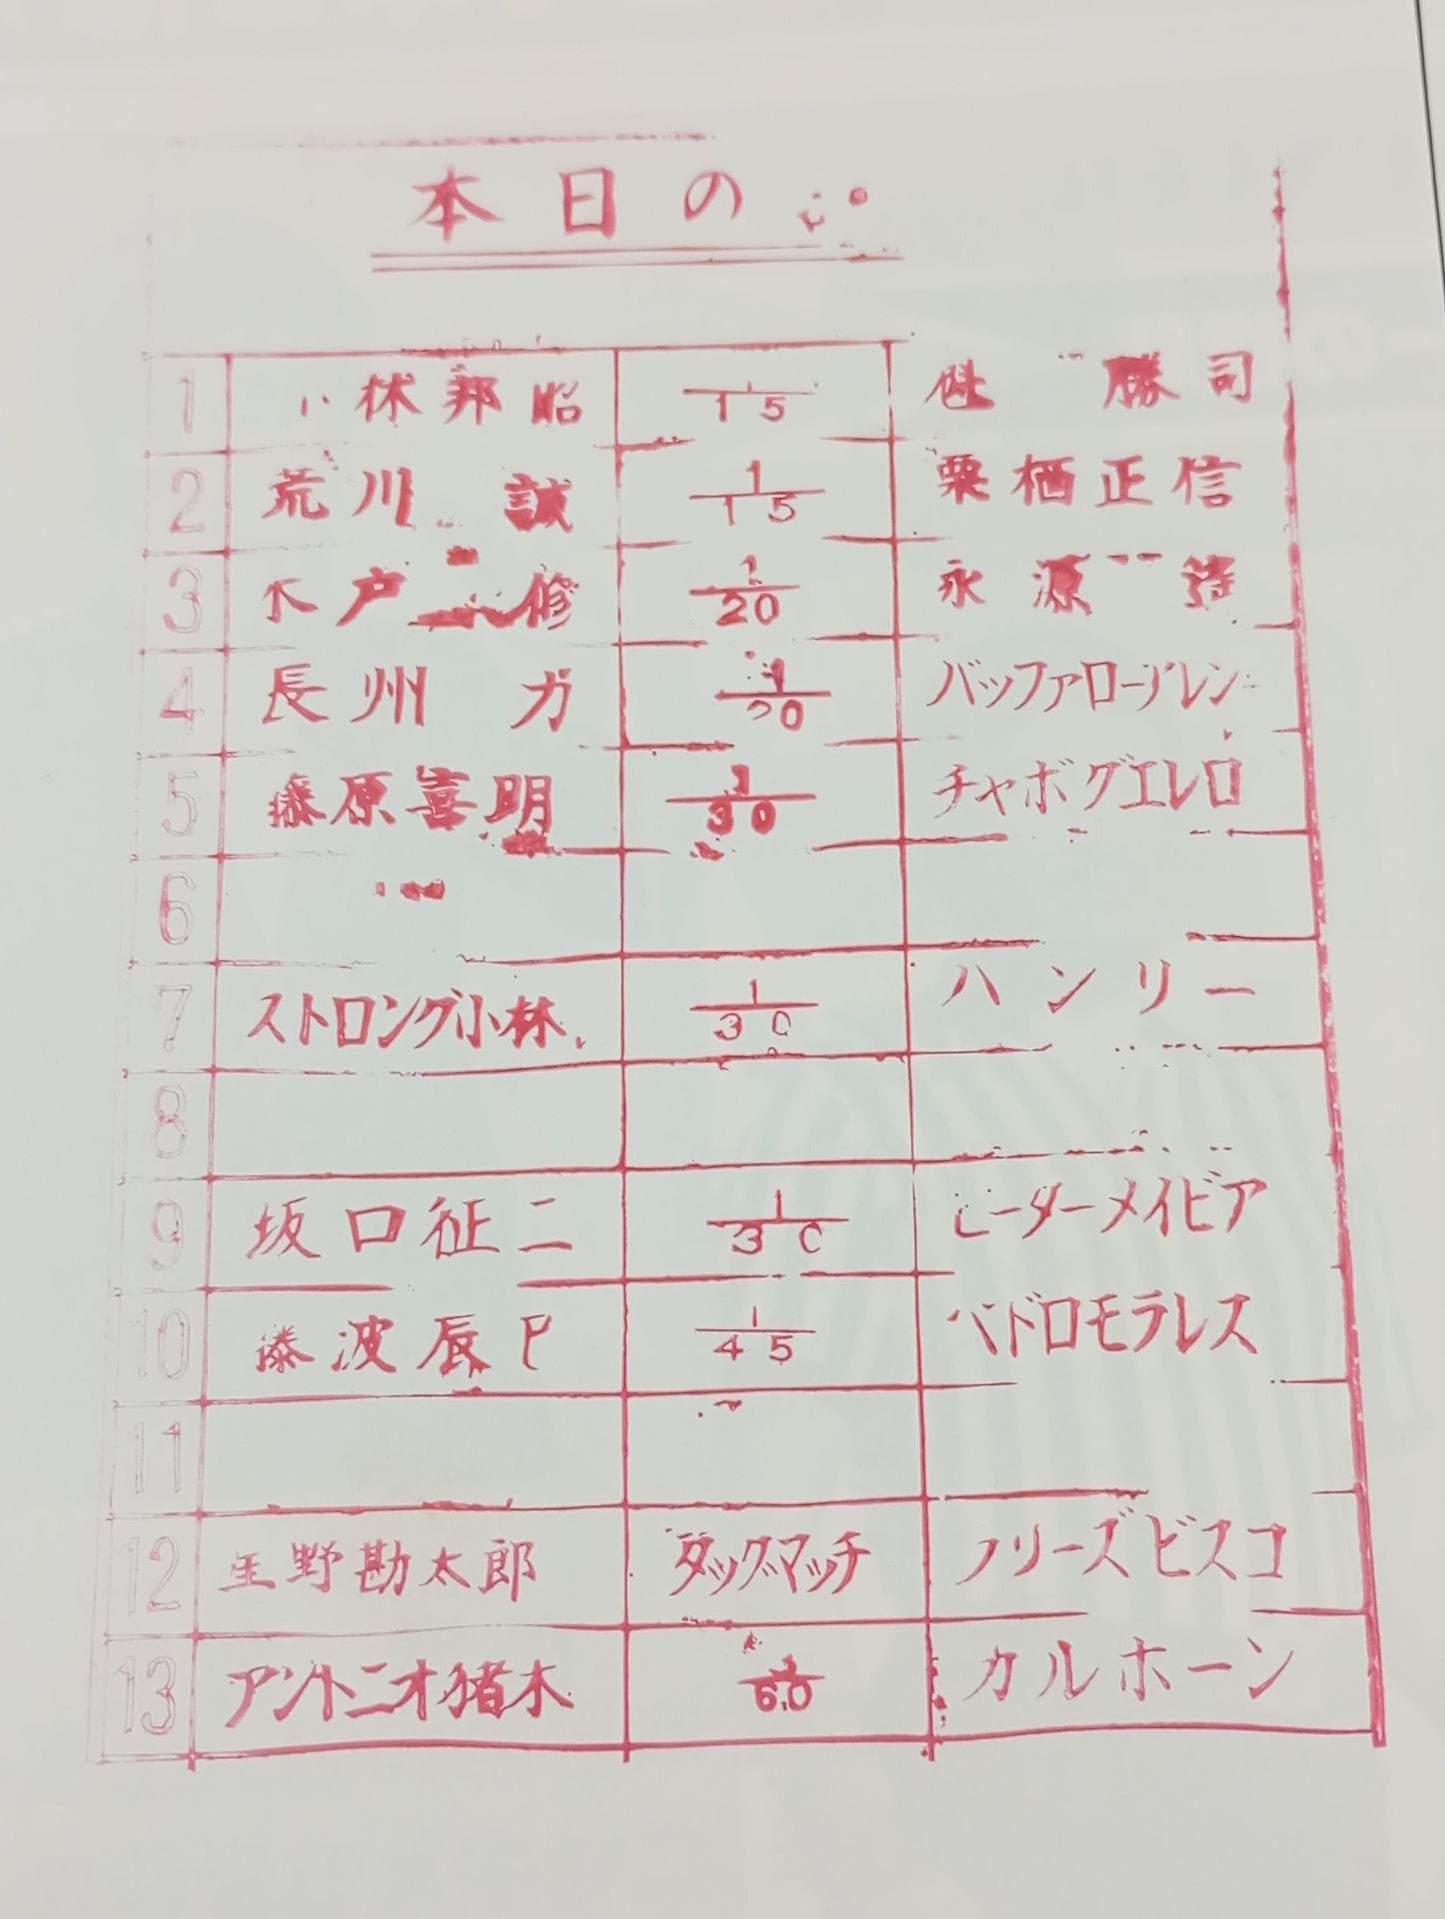 本日の
1 林邦昭 1/15 勝司
2 荒川 誠 1/15 栗栖正信
3 木戸 修 1/20 永源
4 長州 力 1/20 バッファロー
5 藤原喜明 1/30 チャボゲエレロ
6
7 ストロング小林 1/30 ハンリー
8
9 坂口征二 1/30 ーターメイビア
10 藤波辰巳 1/45 ペドロモラレス
11
12 星野勘太郎 タッグマッチ フリーズビスコ
13 アントニオ猪木 1/60 カルホーン